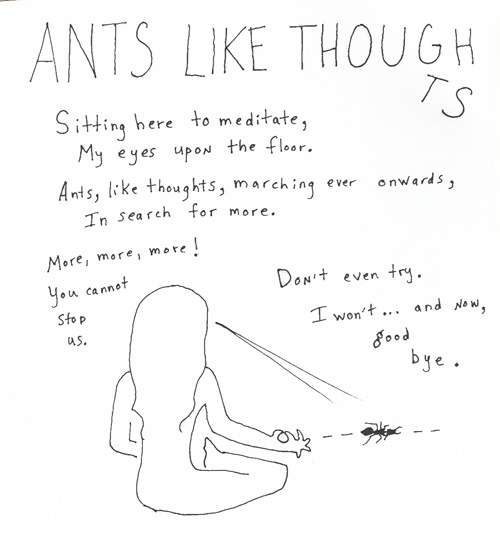 ANTS LIKE THOUGHTS
Sitting here to meditate,
My eyes upon the floor.
Ants, like thoughts, marching ever onwards,
In search for more.
More, more, more!
You cannot
stop
us.
Don't even try.
I won't... and now,
good
bye.